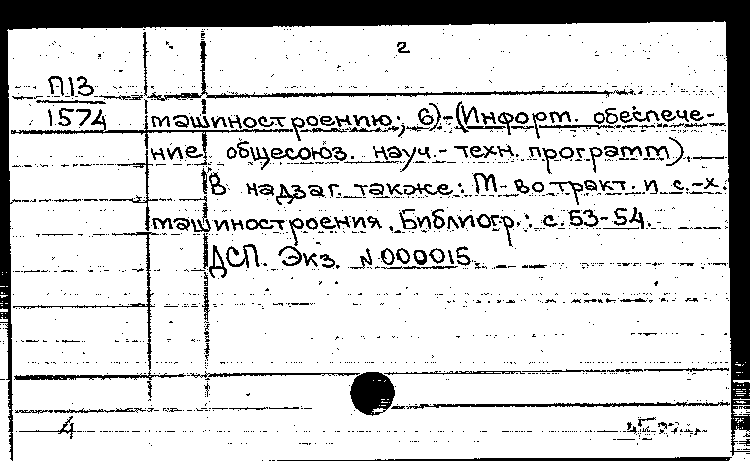 2
П13
1574
машиностроению; 6)-(Информ. обеспече-
ние общесоюз. науч.-техн. программ).
В надзаг. также: М-во тракт. и с.-х.
машиностроения. Библиогр.: с.53-54.
ДСП. Экз. N 000015.
4